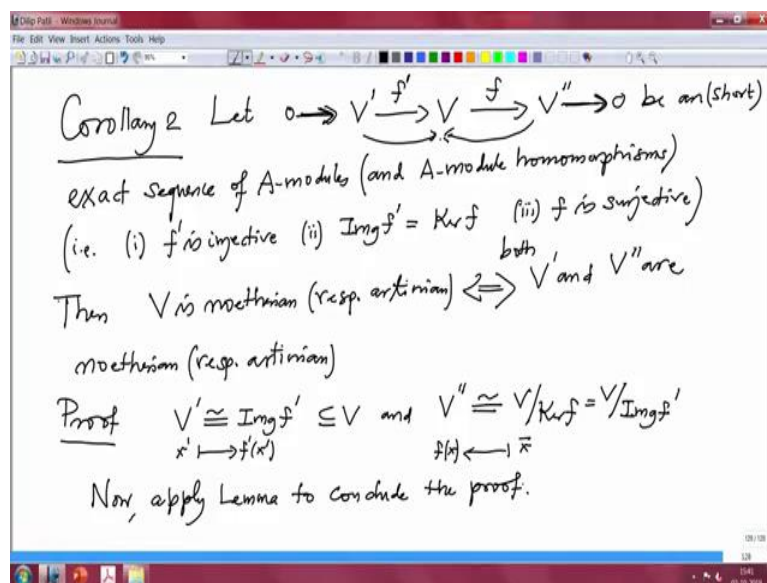 Dilip Patil - Windows Journal
File Edit View Insert Actions Tools Help
Corollary 2 Let 0 → V' →f' V →f V'' → 0 be an (short)
exact sequence of A-modules (and A-module homomorphisms)
(i.e. (i) f' is injective (ii) Img f' = Ker f (iii) f is surjective)
Then V is noetherian (resp. artinian) ⟺ both V' and V'' are
noetherian (resp. artinian)
Proof V' ≅ Img f' ⊆ V and V'' ≅ V/Ker f = V/Img f'
x' ⟼ f'(x') f(x) ⟻ x̄
Now, apply Lemma to conclude the proof.
128
15:41